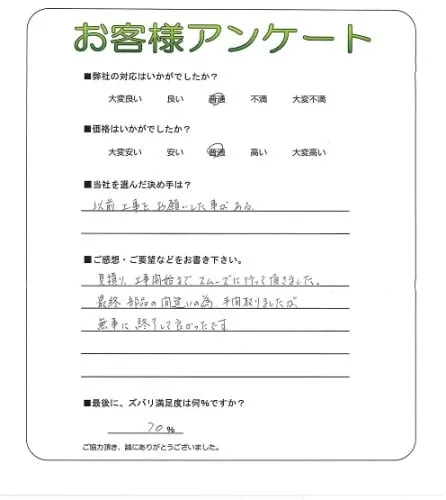 お客様アンケート
■弊社の対応はいかがでしたか?
大変良い 良い 普通 不満 大変不満
■価格はいかがでしたか?
大変安い 安い 普通 高い 大変高い
■当社を選んだ決め手は?
以前工事をお願いした事がある。
■ご感想・ご要望などをお書き下さい。
見積り、工事開始までスムーズに行って頂きました。
最終部品の間違いの為、手間取りましたが
無事に終了して良かったです
■最後に、ズバリ満足度は何%ですか?
70%
ご協力頂き、誠にありがとうございました。